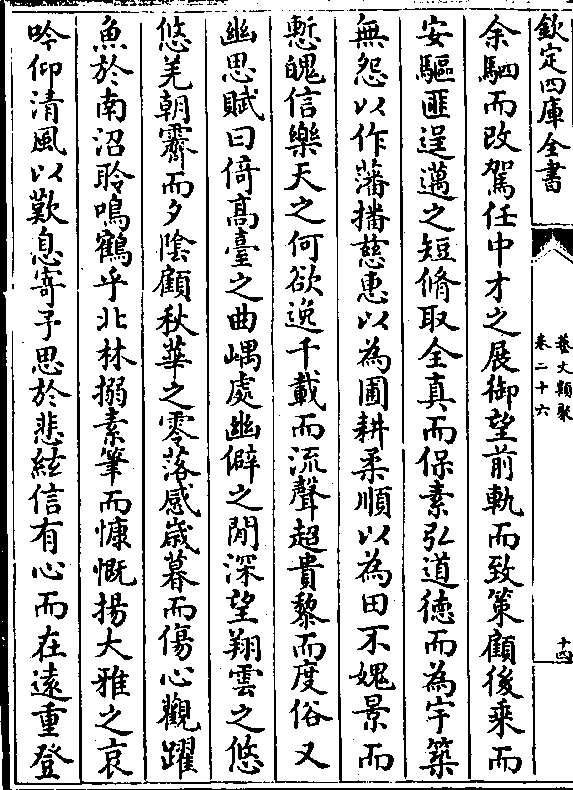 欽定四庫全書
藝文類聚
卷二十六
十四
余駟而改駕任中才之展御望前軌而致策顧後乗而
安驅匪逞邁之短脩取全真而保素弘道徳而為宇築
無怨以作藩播慈惠以為圃耕柔順以為田不媿景而
慙魄信樂天之何欲逸千載而流聲超貴黎而度俗又
幽思賦曰倚高臺之曲嵎處幽僻之閒深望翔雲之悠
悠羌朝霽而夕陰顧秋華之零落感歲暮而傷心觀躍
魚於南沼聆鳴鶴乎北林搦素筆而慷慨揚大雅之哀
吟仰清風以歎息寄予思於悲絃信有心而在遠重登